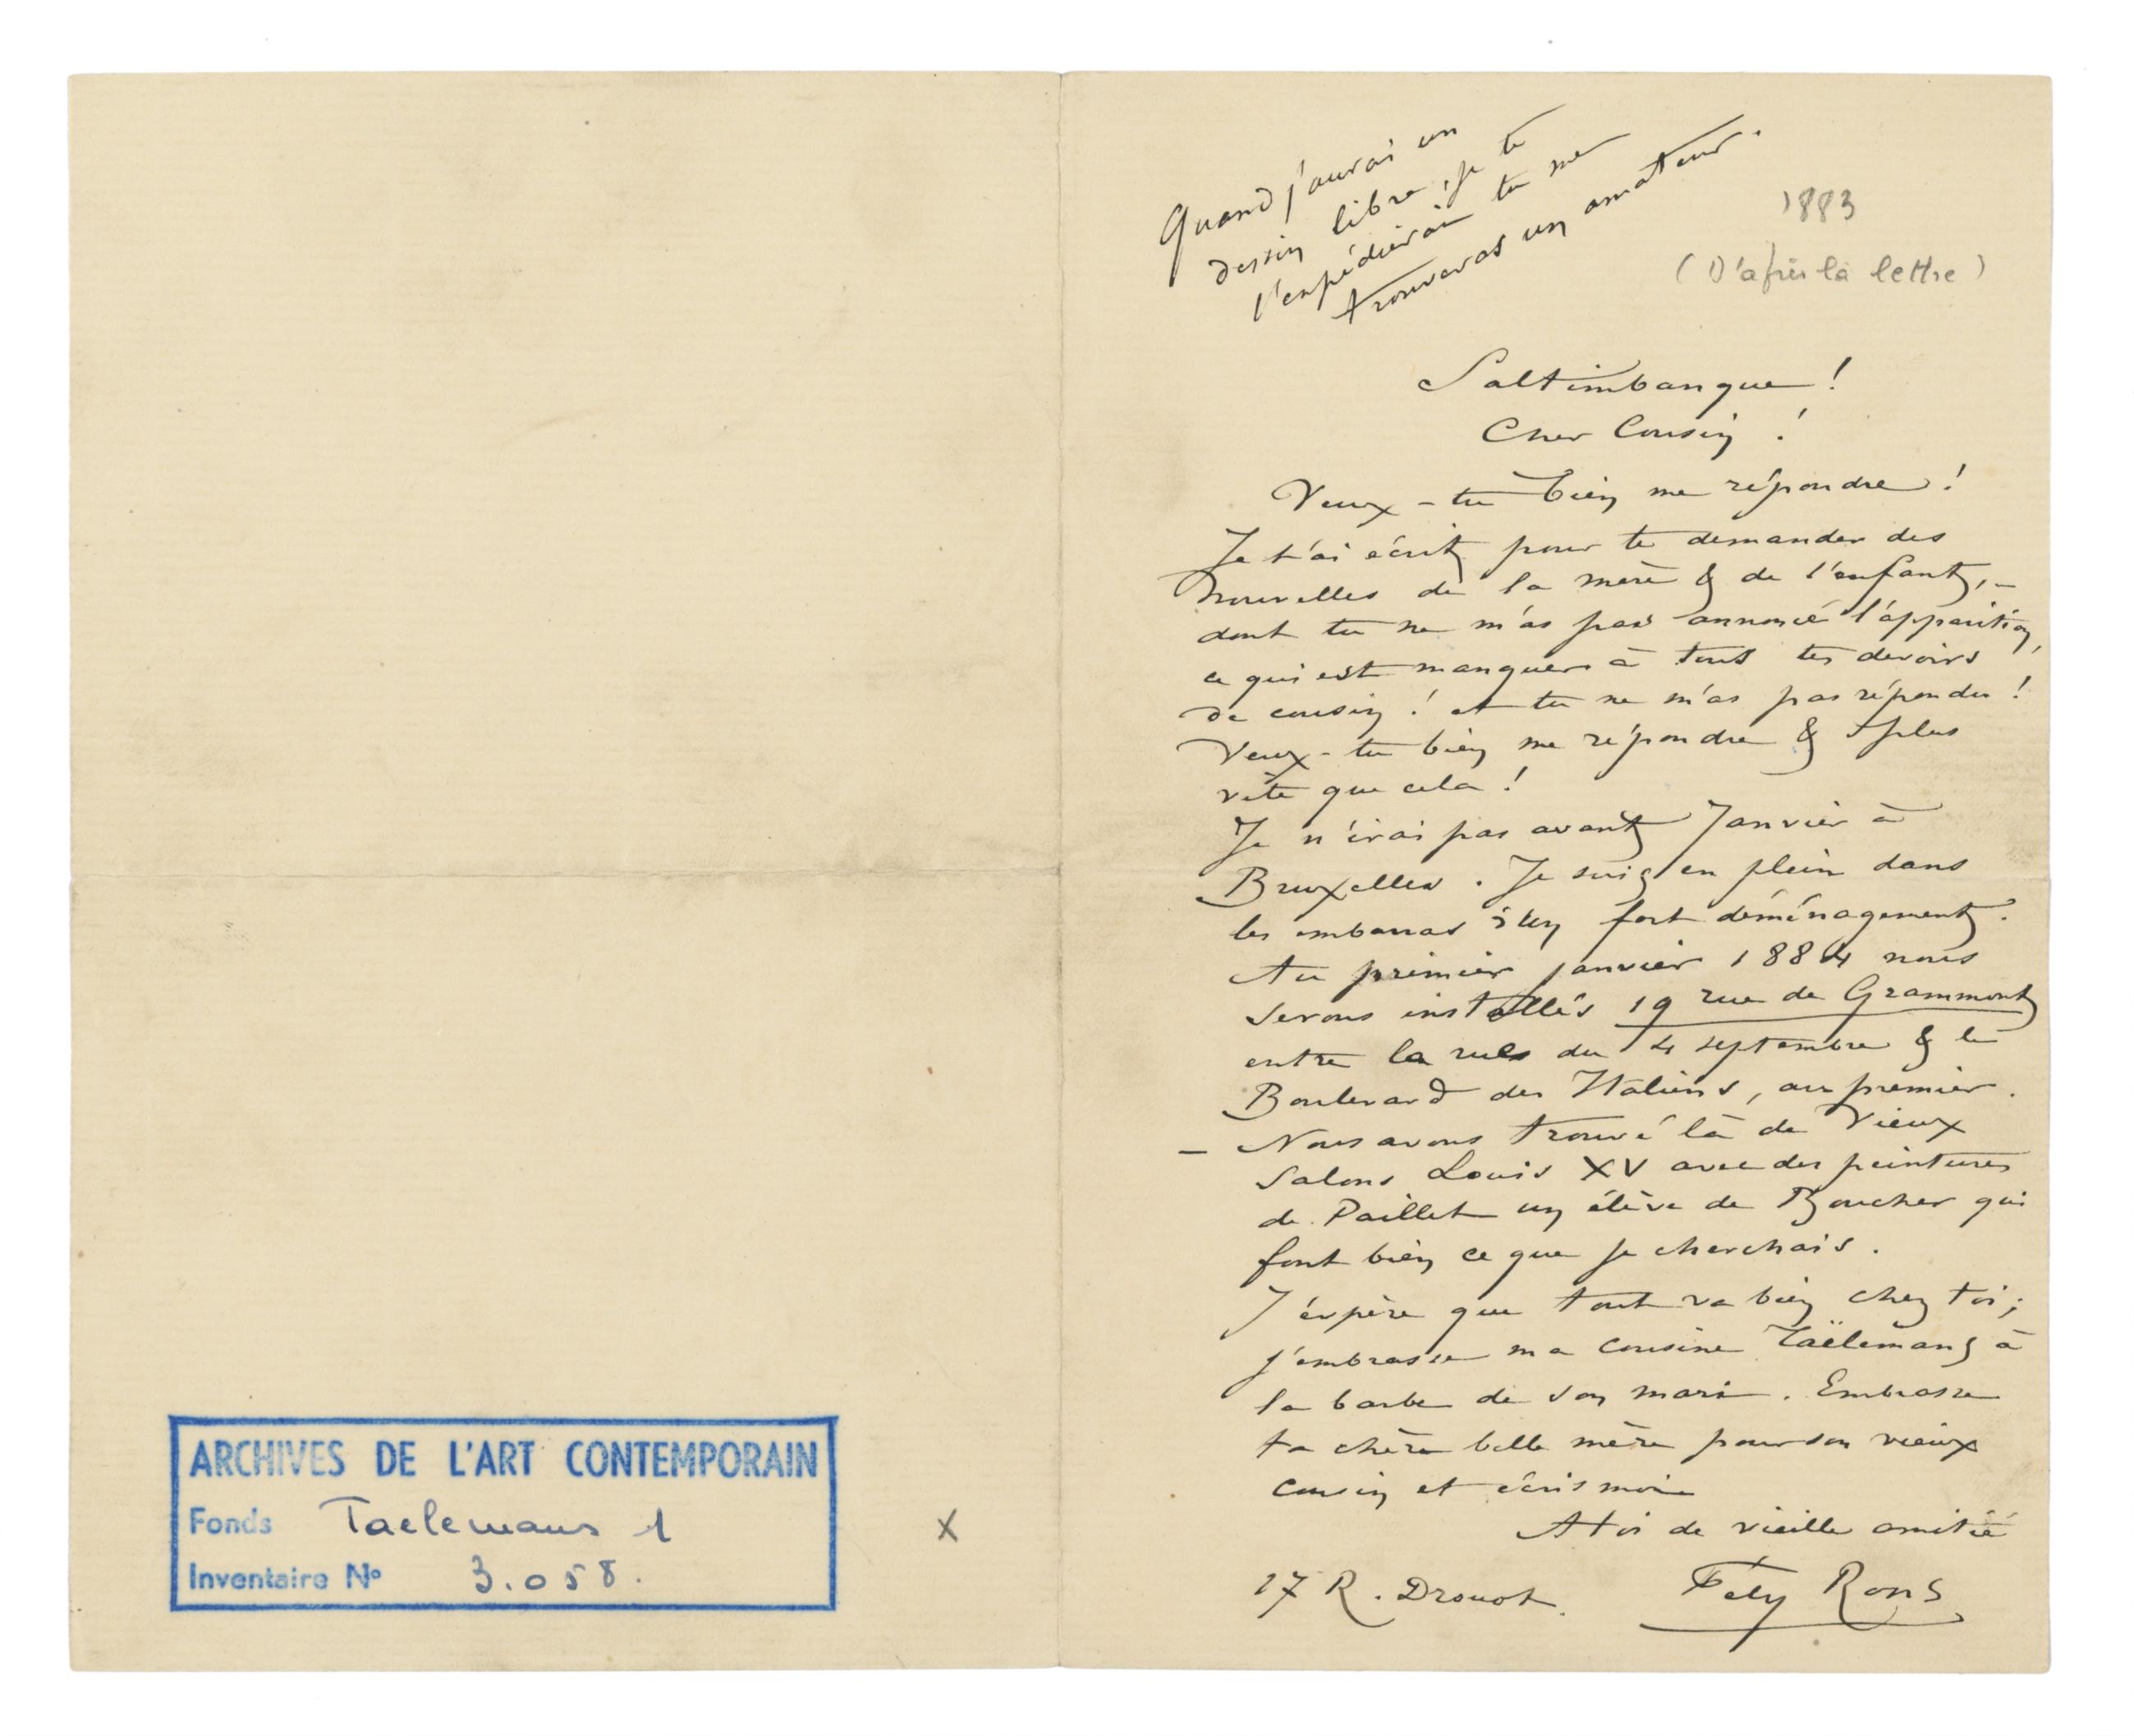 ARCHIVES DE L'ART CONTEMPORAIN
Fonds Taelemans 1
Inventaire No 3.058.
X
Quand j'aurai un
dessin libre, je te
l'expédierai tu me
trouveras un amateur.
1883
(D'après la lettre)
Saltimbanque !
Cher Cousin !
Veux-tu bien me répondre !
Je t'ai écrit pour te demander des
nouvelles de la mère & de l'enfant, –
dont tu ne m'as pas annoncé l'apparition,
ce qui est manquer à tous tes devoirs
de cousin ! et tu ne m'as pas répondu !
Veux-tu bien me répondre & plus
vite que cela !
Je n'irai pas avant Janvier à
Bruxelles. Je suis en plein dans
les embarras d'un fort déménagement.
Au premier janvier 1884 nous
serons installés 19 rue de Grammont
entre la rue du 4 septembre & le
Boulevard des Italiens, au premier.
– Nous avons trouvé là de Vieux
Salons Louis XV avec des peintures
de Paillet un élève de Boucher qui
font bien ce que je cherchais.
J'éspère que tout va bien chez toi ;
j'embrasse ma cousine Taëlemans à
la barbe de son mari. Embrasse
ta chère belle mère pour son vieux
cousin et écris moi
A toi de vieille amitié
17 R. Drouot. Fély Rops